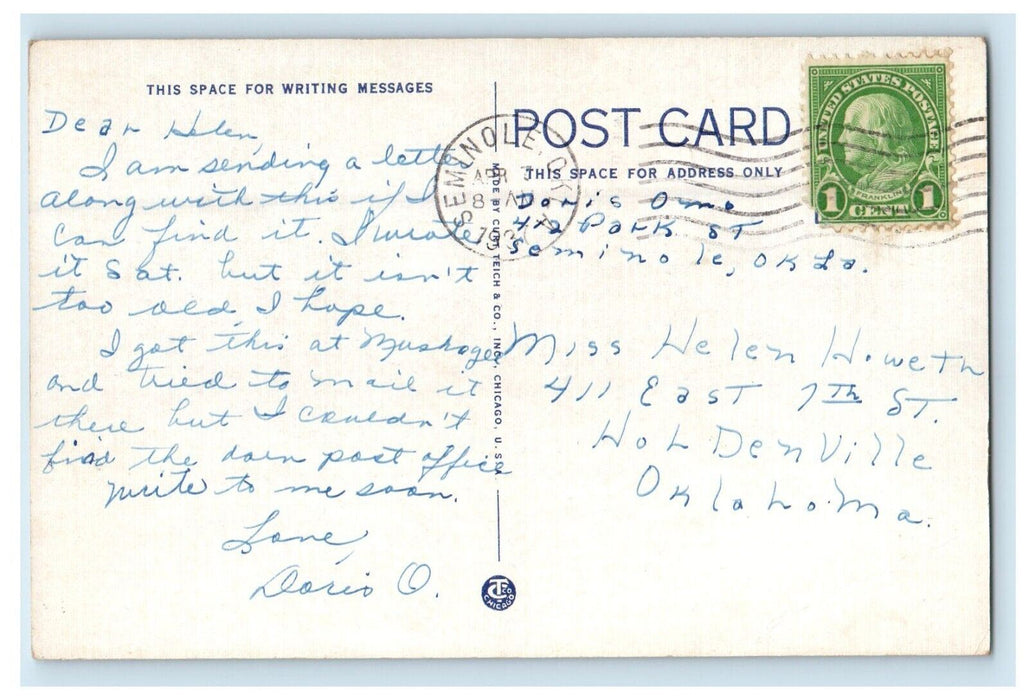 THIS SPACE FOR WRITING MESSAGES
Dear Helen,
I am sending a letter
along with this if I
can find it. I wrote
it Sat. but it isn't
too old, I hope.
I got this at Muskogee
and tried to mail it
there but I couldn't
find the darn post office
write to me soon.
Love,
Doris O.
MADE BY CURT TEICH & CO., INC., CHICAGO, U.S.
CT CO
CHICAGO
SEMINOLE, OK
APR
8 A
19
POST CARD
THIS SPACE FOR ADDRESS ONLY
Doris
Park ST
Seminole, Okla.
UNITED STATES POSTAGE
FRANKLIN
1 CENT 1
Miss Helen Howeth
411 East 7th ST.
HolDenVille
Oklahoma.